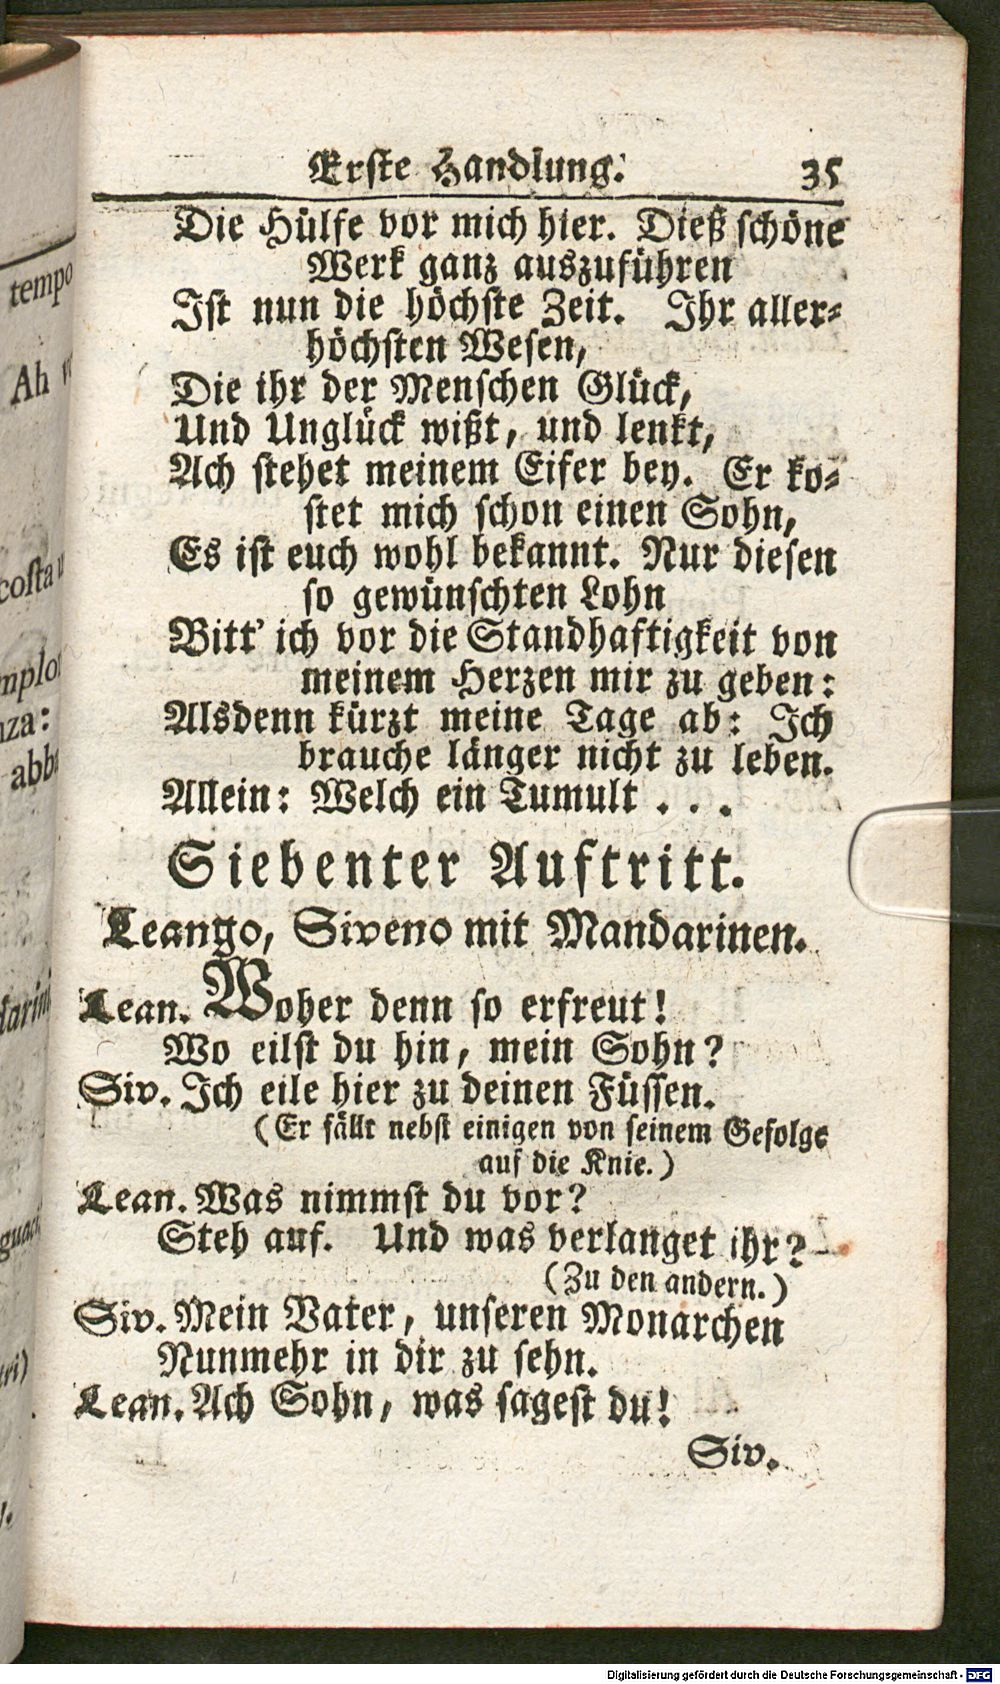 Erste Handlung. 35
Die Hülfe vor mich hier. Dieß schöne
Werk ganz auszuführen
Ist nun die höchste Zeit. Ihr aller-
höchsten Wesen,
Die ihr der Menschen Glück,
Und Unglück wißt, und lenkt,
Ach stehet meinem Eifer bey. Er ko-
stet mich schon einen Sohn,
Es ist euch wohl bekannt. Nur diesen
so gewünschten Lohn
Bitt' ich vor die Standhaftigkeit von
meinem Herzen mir zu geben:
Alsdenn kürzt meine Tage ab: Ich
brauche länger nicht zu leben.
Allein: Welch ein Tumult . . .
Siebenter Auftritt.
Leango, Siveno mit Mandarinen.
Lean. Woher denn so erfreut!
Wo eilst du hin, mein Sohn?
Siv. Ich eile hier zu deinen Füssen.
(Er fällt nebst einigen von seinem Gefolge
auf die Knie.)
Lean. Was nimmst du vor?
Steh auf. Und was verlanget ihr?
(Zu den andern.)
Siv. Mein Vater, unseren Monarchen
Nunmehr in dir zu sehn.
Lean. Ach Sohn, was sagest du!
Siv.
tempo
Ah
costa
abb
Digitalisierung gefördert durch die Deutsche Forschungsgemeinschaft - DFG